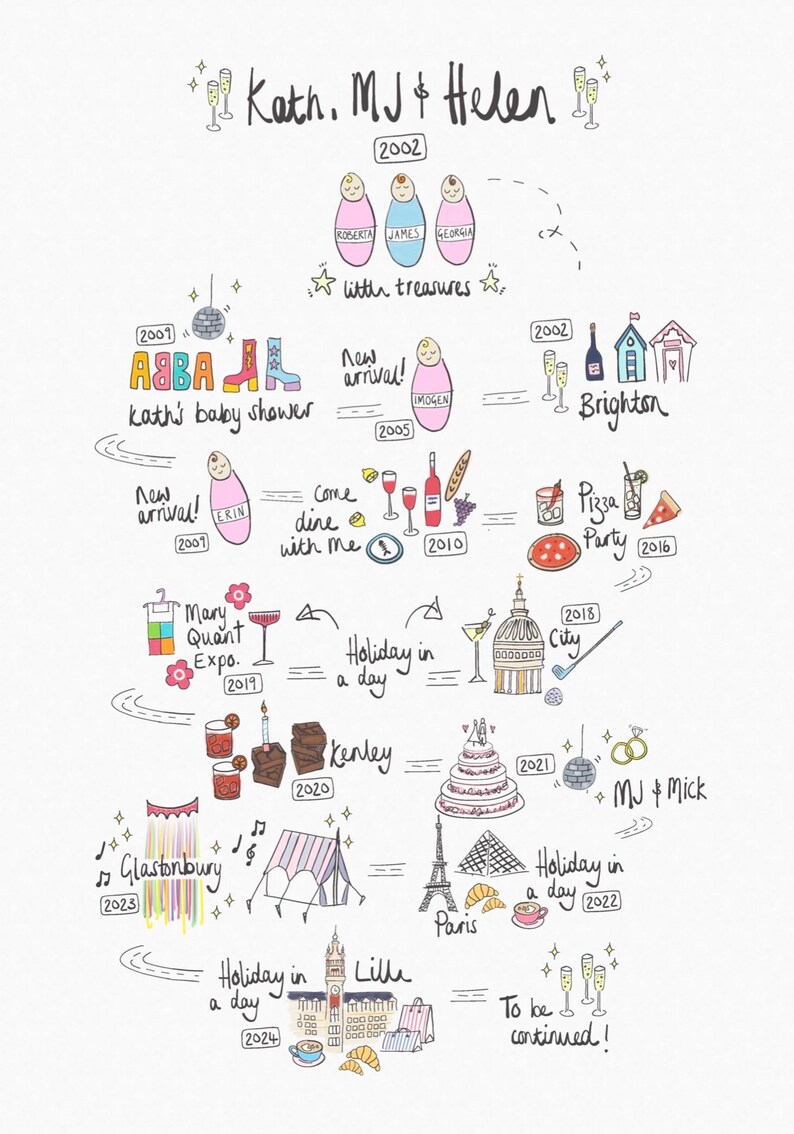 Kath, MJ & Helen
2002
ROBERTA
JAMES
GEORGIA
little treasures
2002
Brighton
New
arrival!
IMOGEN
2005
2009
ABBA
Kath's baby shower
New
arrival!
ERIN
2009
Come
dine
with me
2010
Pizza
Party
2016
2018
City
Holiday in
a day
Mary
Quant
Expo.
2019
Kenley
2020
2021
MJ & Mick
Holiday in
a day
2022
Paris
Glastonbury
2023
Holiday in
a day
Lille
2024
To be
continued!